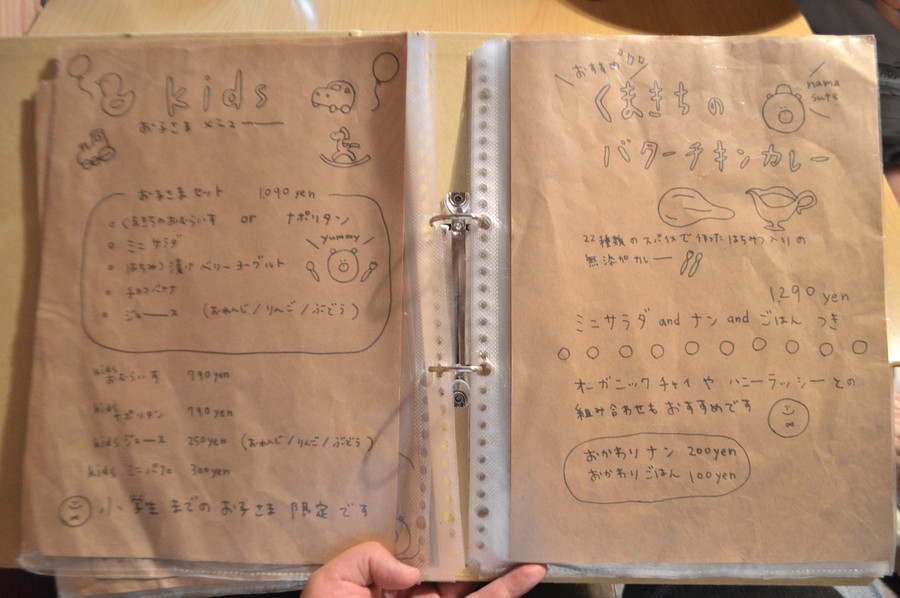 kids
お子さまメニュー
お子さまセット 1,090 yen
くまきちのおむらいす or ナポリタン
ミニサラダ
はちみつ漬けベリーヨーグルト
チョコバナナ
ジュース (おれんじ/りんご/ぶどう)
yummy
kids おむらいす 790yen
kids ナポリタン 790yen
kids ジュース 250yen (おれんじ/りんご/ぶどう)
kids ミニパフェ 300yen
小学生までのお子さま限定です
おすすめ
くまきちの
バターチキンカレー
22種類のスパイスで作ったはちみつ入りの
無添加カレー
1,290 yen
ミニサラダ and ナン and ごはん つき
オーガニックチャイや ハニーラッシーとの
組み合わせもおすすめです
おかわり ナン 200yen
おかわり ごはん 100yen